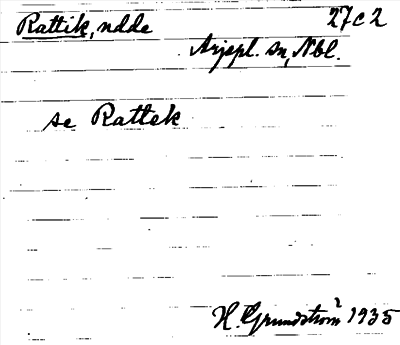 Rattik, ndde 27c2
Arjepl. sn, Nbl.
se Rattek
H. Grundström 1935